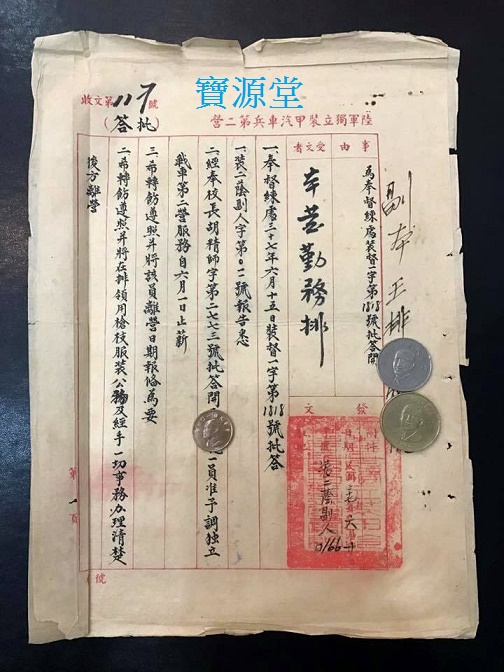 寶源堂
收文第117號
(批答)
陸軍獨立裝甲汽車兵第二營
事由
為奉督練處裝督一字第1818號批答開
受文者
本營勤務排
副本王排
發文
裝二蔭副人
0166
一、奉督練處三十七年六月十五日裝督一字第1818號批答
一、裝二蔭副人字第0一一號報告悉
二、經奉校長胡精師字第二七七三號批答開
一員准予調獨立
戰車第二營服務自六月一日止薪
三、希轉飭遵照并將該員離營日期報俻為要
二、希轉飭遵照并將在排領用槍枝服裝公物及經手一切事務办理清楚
後方離營
第
號